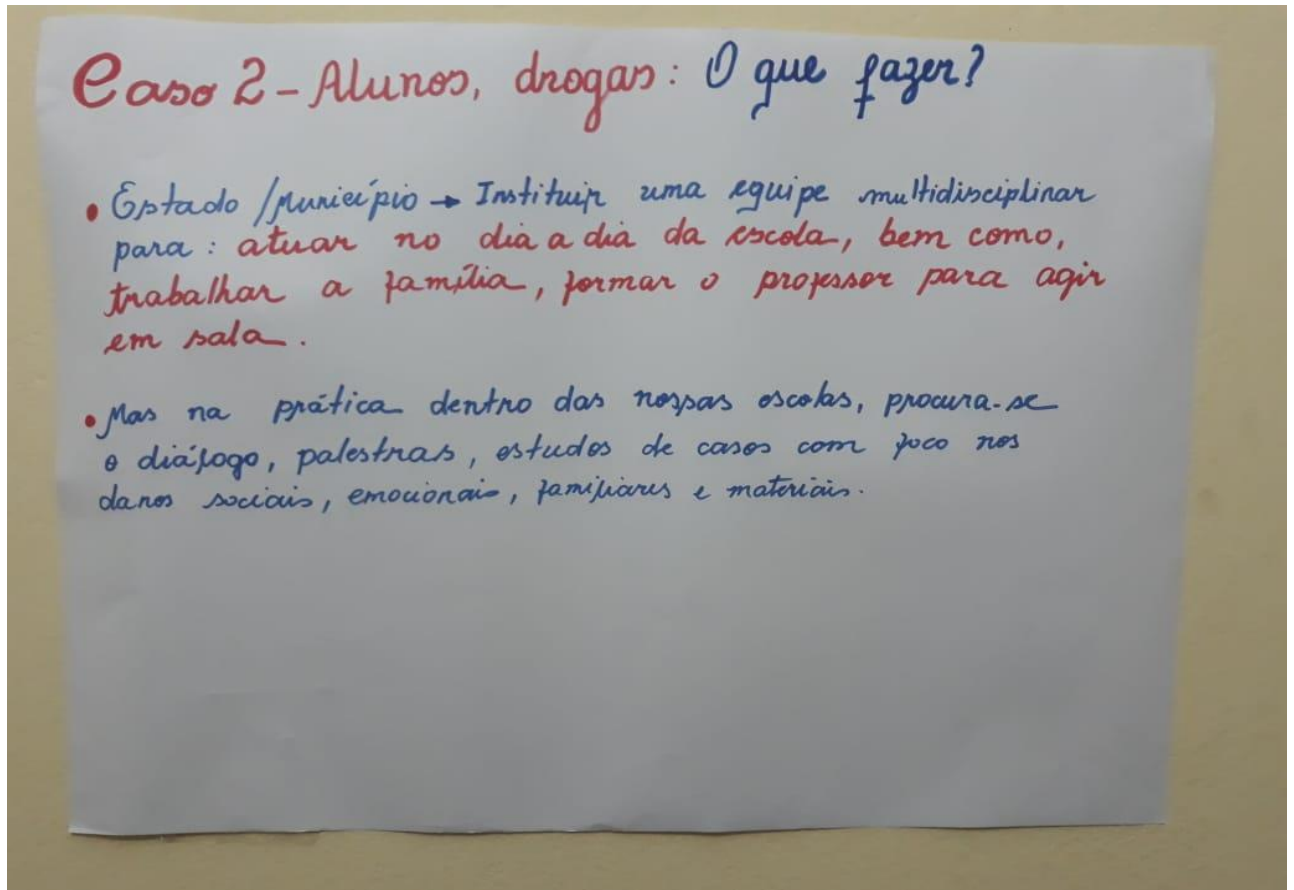 Caso 2 - Alunos, drogas: O que fazer?
• Estado/Município → Instituir uma equipe multidisciplinar
para: atuar no dia a dia da escola, bem como,
trabalhar a família, formar o professor para agir
em sala.
• Mas na prática dentro das nossas escolas, procura-se
o diálogo, palestras, estudos de casos com foco nos
danos sociais, emocionais, familiares e materiais.